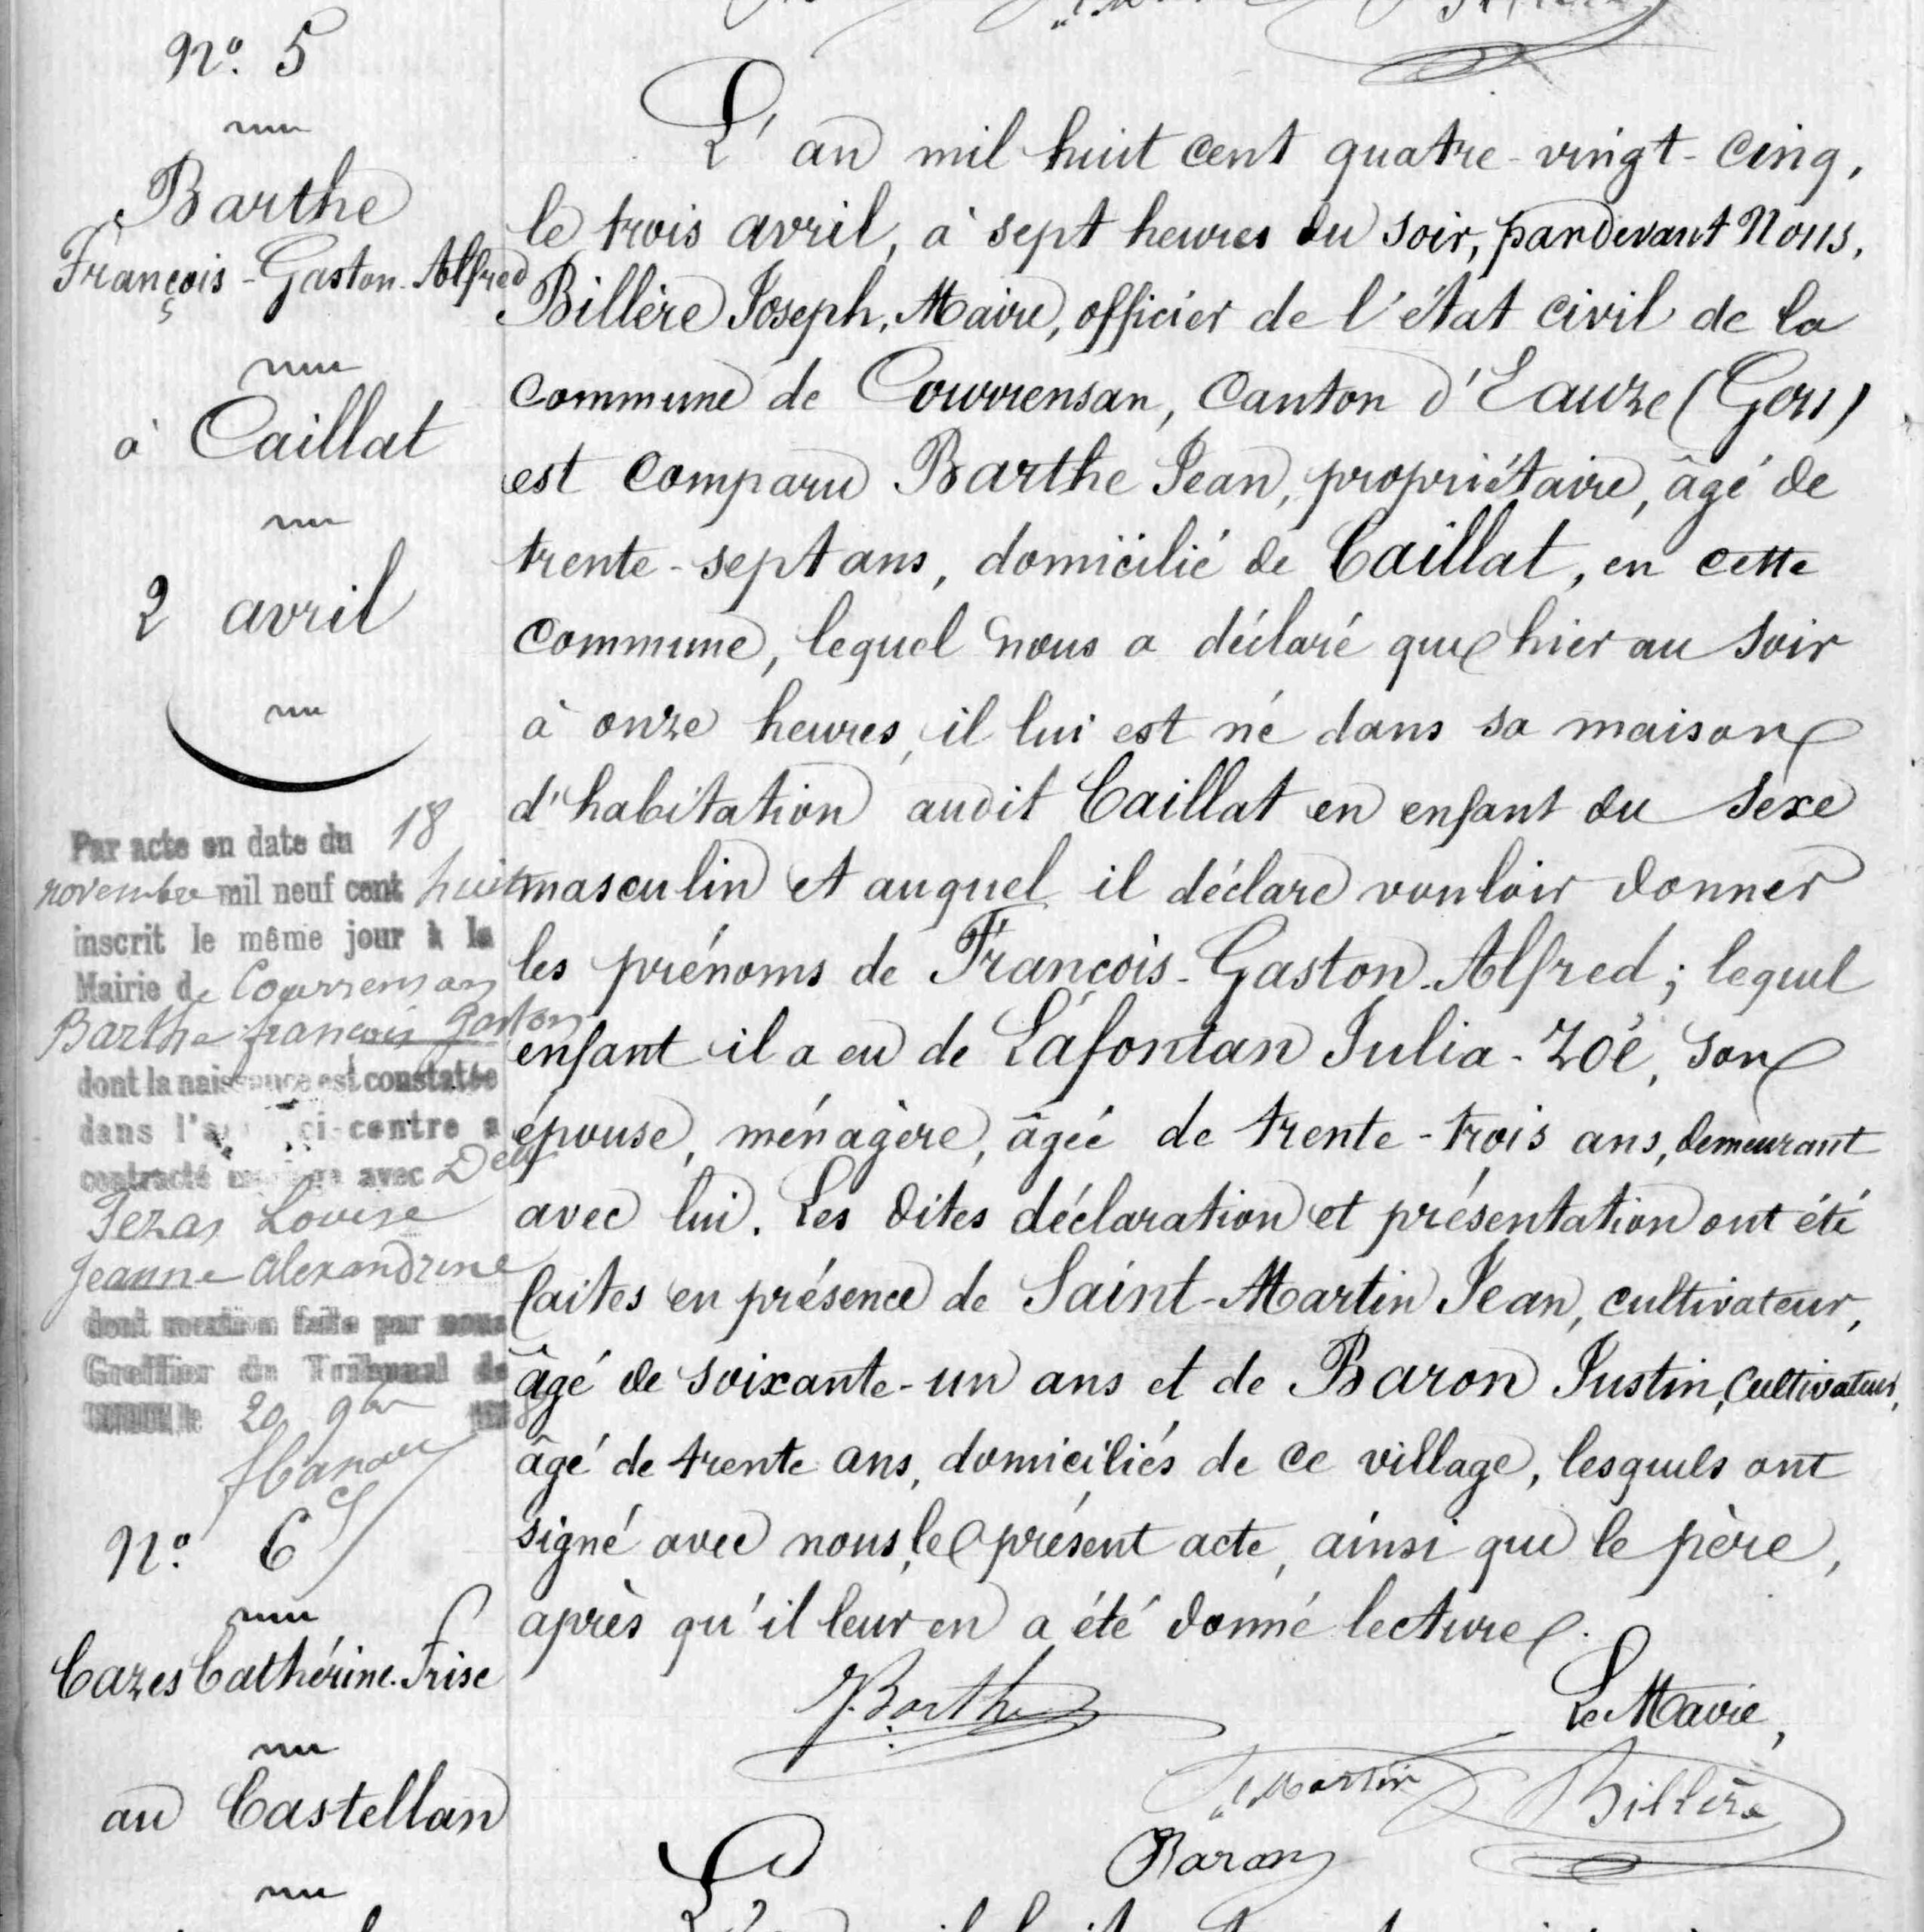 N.º 5
Barthe
François-Gaston-Alfred
à Caillat
2 avril
Par acte en date du 18
novembre mil neuf cent huit
inscrit le même jour à la
Mairie de Courrensan
Barthe françois gaston
dont la naissance est constatée
dans l'a ci-contre a
contracté mariage avec Delle
Pezas Louise
Jeanne Alexandrine
dont mention faite par nous
Greffier du Tribunal de
le 20 9bre
N.º 6
Cazes Cathérine-Frise
au Castellan
L'an mil huit cent quatre-vingt-cinq,
le trois avril, à sept heures du soir, pardevant Nous,
Billère Joseph, Maire, officier de l'état civil de la
commune de Courrensan, Canton d'Eauze (Gers)
est comparu Barthe Jean, propriétaire, âgé de
trente-sept ans, domicilié de Caillat, en cette
commune, lequel nous a déclaré que hier au soir
à onze heures, il lui est né dans sa maison
d'habitation audit Caillat en enfant du sexe
masculin et auquel il déclare vouloir donner
les prénoms de François-Gaston-Alfred; lequel
enfant il a eu de Lafontan Julia-Zoé, son
épouse, ménagère, âgée de trente-trois ans, demeurant
avec lui. Les dites déclaration et présentation ont été
faites en présence de Saint-Martin Jean, cultivateur,
âgé de soixante-un ans et de Baron Justin, Cultivateur,
âgé de trente ans, domiciliés de ce village, lesquels ont
signé avec nous, le présent acte, ainsi que le père,
après qu'il leur en a été donné lecture.
J. Barthe
Le Maire,
St Martin
Billère
Baron